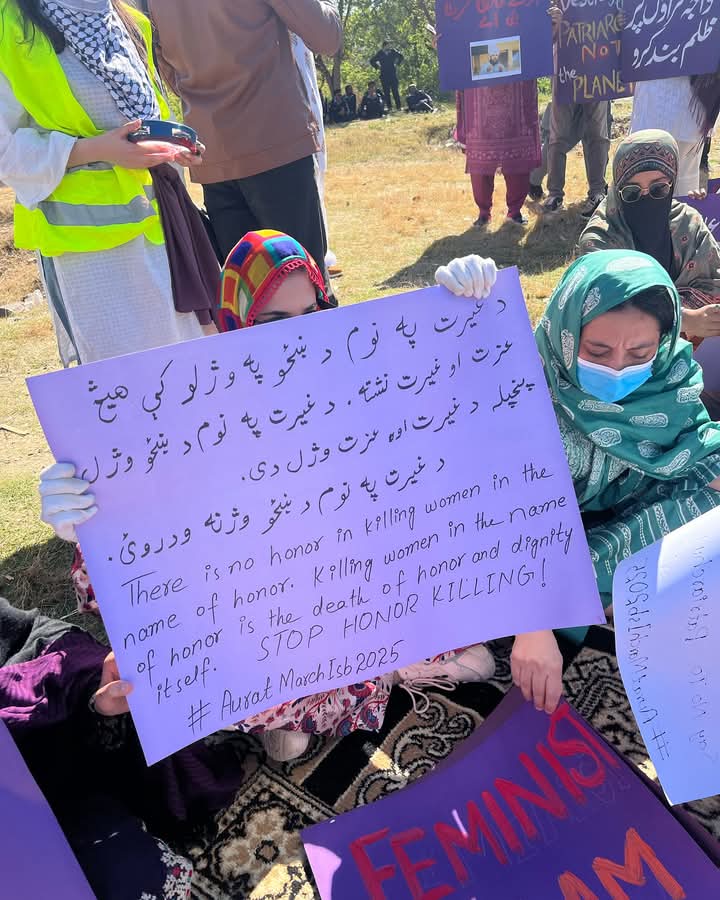 DESTROY
PATRIARCHY
NOT
the PLANET
ظلم بند کرو
د غیرت په نوم د ښځو په وژلو کې هیڅ
عزت او غیرت نشته. د غیرت په نوم د ښځو وژل
پخپله د غیرت اوه عزت وژل دی.
د غیرت په نوم د ښځو وژنه ودروئ.
There is no honor in killing women in the
name of honor. Killing women in the name
of honor is the death of honor and dignity
itself. STOP HONOR KILLING!
#AuratMarchIsb2025
FEMINIST